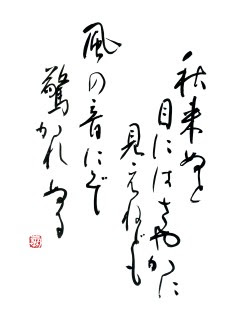 秋来ぬと
目にはさやかに
見えねども
風の音にぞ
驚かれぬる